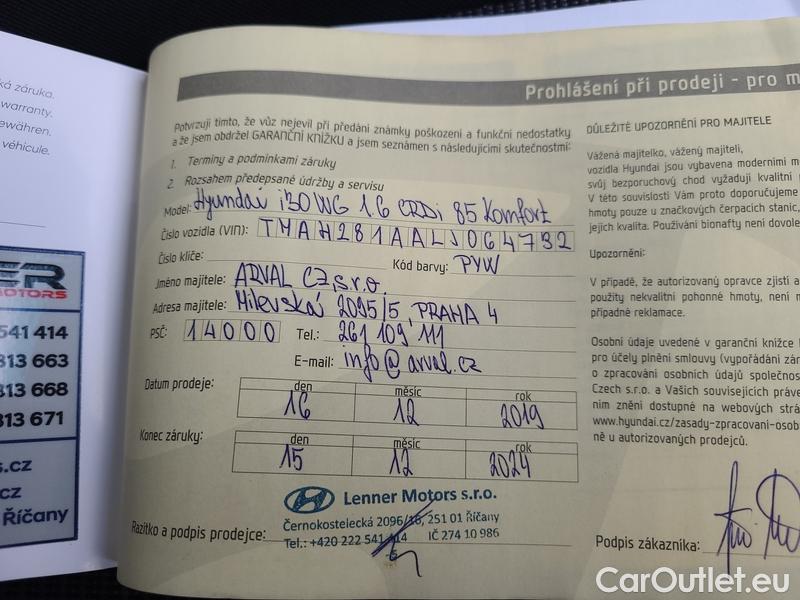 ká záruka.
warranty.
ewähren.
véhicule.
ER
MOTORS
541 414
813 663
813 668
813 671
s.cz
cz
Říčany
Prohlášení při prodeji - pro m
Potvrzuji tímto, že vůz nejevil při předání známky poškození a funkční nedostatky
a že jsem obdržel GARANČNÍ KNÍŽKU a jsem seznámen s následujícími skutečnostmi:
1. Termíny a podmínkami záruky
2. Rozsahem předepsané údržby a servisu
Model: Hyundai i30 WG 1.6 CRDi 85 Komfort
Číslo vozidla (VIN): TMAH281AALJ064732
Číslo klíče:
Kód barvy: PYW
Jméno majitele: ARVAL CZ, s.r.o.
Adresa majitele: Milevská 2095/5, PRAHA 4
PSČ: 14000 Tel.: 261 109 111
E-mail: info@arval.cz
Datum prodeje: den měsíc rok
16 12 2019
Konec záruky: den měsíc rok
15 12 2024
Lenner Motors s.r.o.
Černokostelecká 2096/16, 251 01 Říčany
Razítko a podpis prodejce:
Tel.: +420 222 541 414 IČ 274 10 986
DŮLEŽITÉ UPOZORNĚNÍ PRO MAJITELE
Vážená majitelko, vážený majiteli,
vozidla Hyundai jsou vybavena moderními m
svůj bezporuchový chod vyžadují kvalitní p
V této souvislosti Vám proto doporučujeme
hmoty pouze u značkových čerpacích stanic,
jejich kvalita. Používání bionafty není dovole
Upozornění:
V případě, že autorizovaný opravce zjistí a
použity nekvalitní pohonné hmoty, není m
případné reklamace.
Osobní údaje uvedené v garanční knížce
pro účely plnění smlouvy (vypořádání zár
o zpracování osobních údajů společnos
Czech s.r.o. a Vašich souvisejících práve
ním znění dostupné na webových strá
www.hyundai.cz/zasady-zpracovani-osob
ně u autorizovaných prodejců.
Podpis zákazníka:
CarOutlet.eu